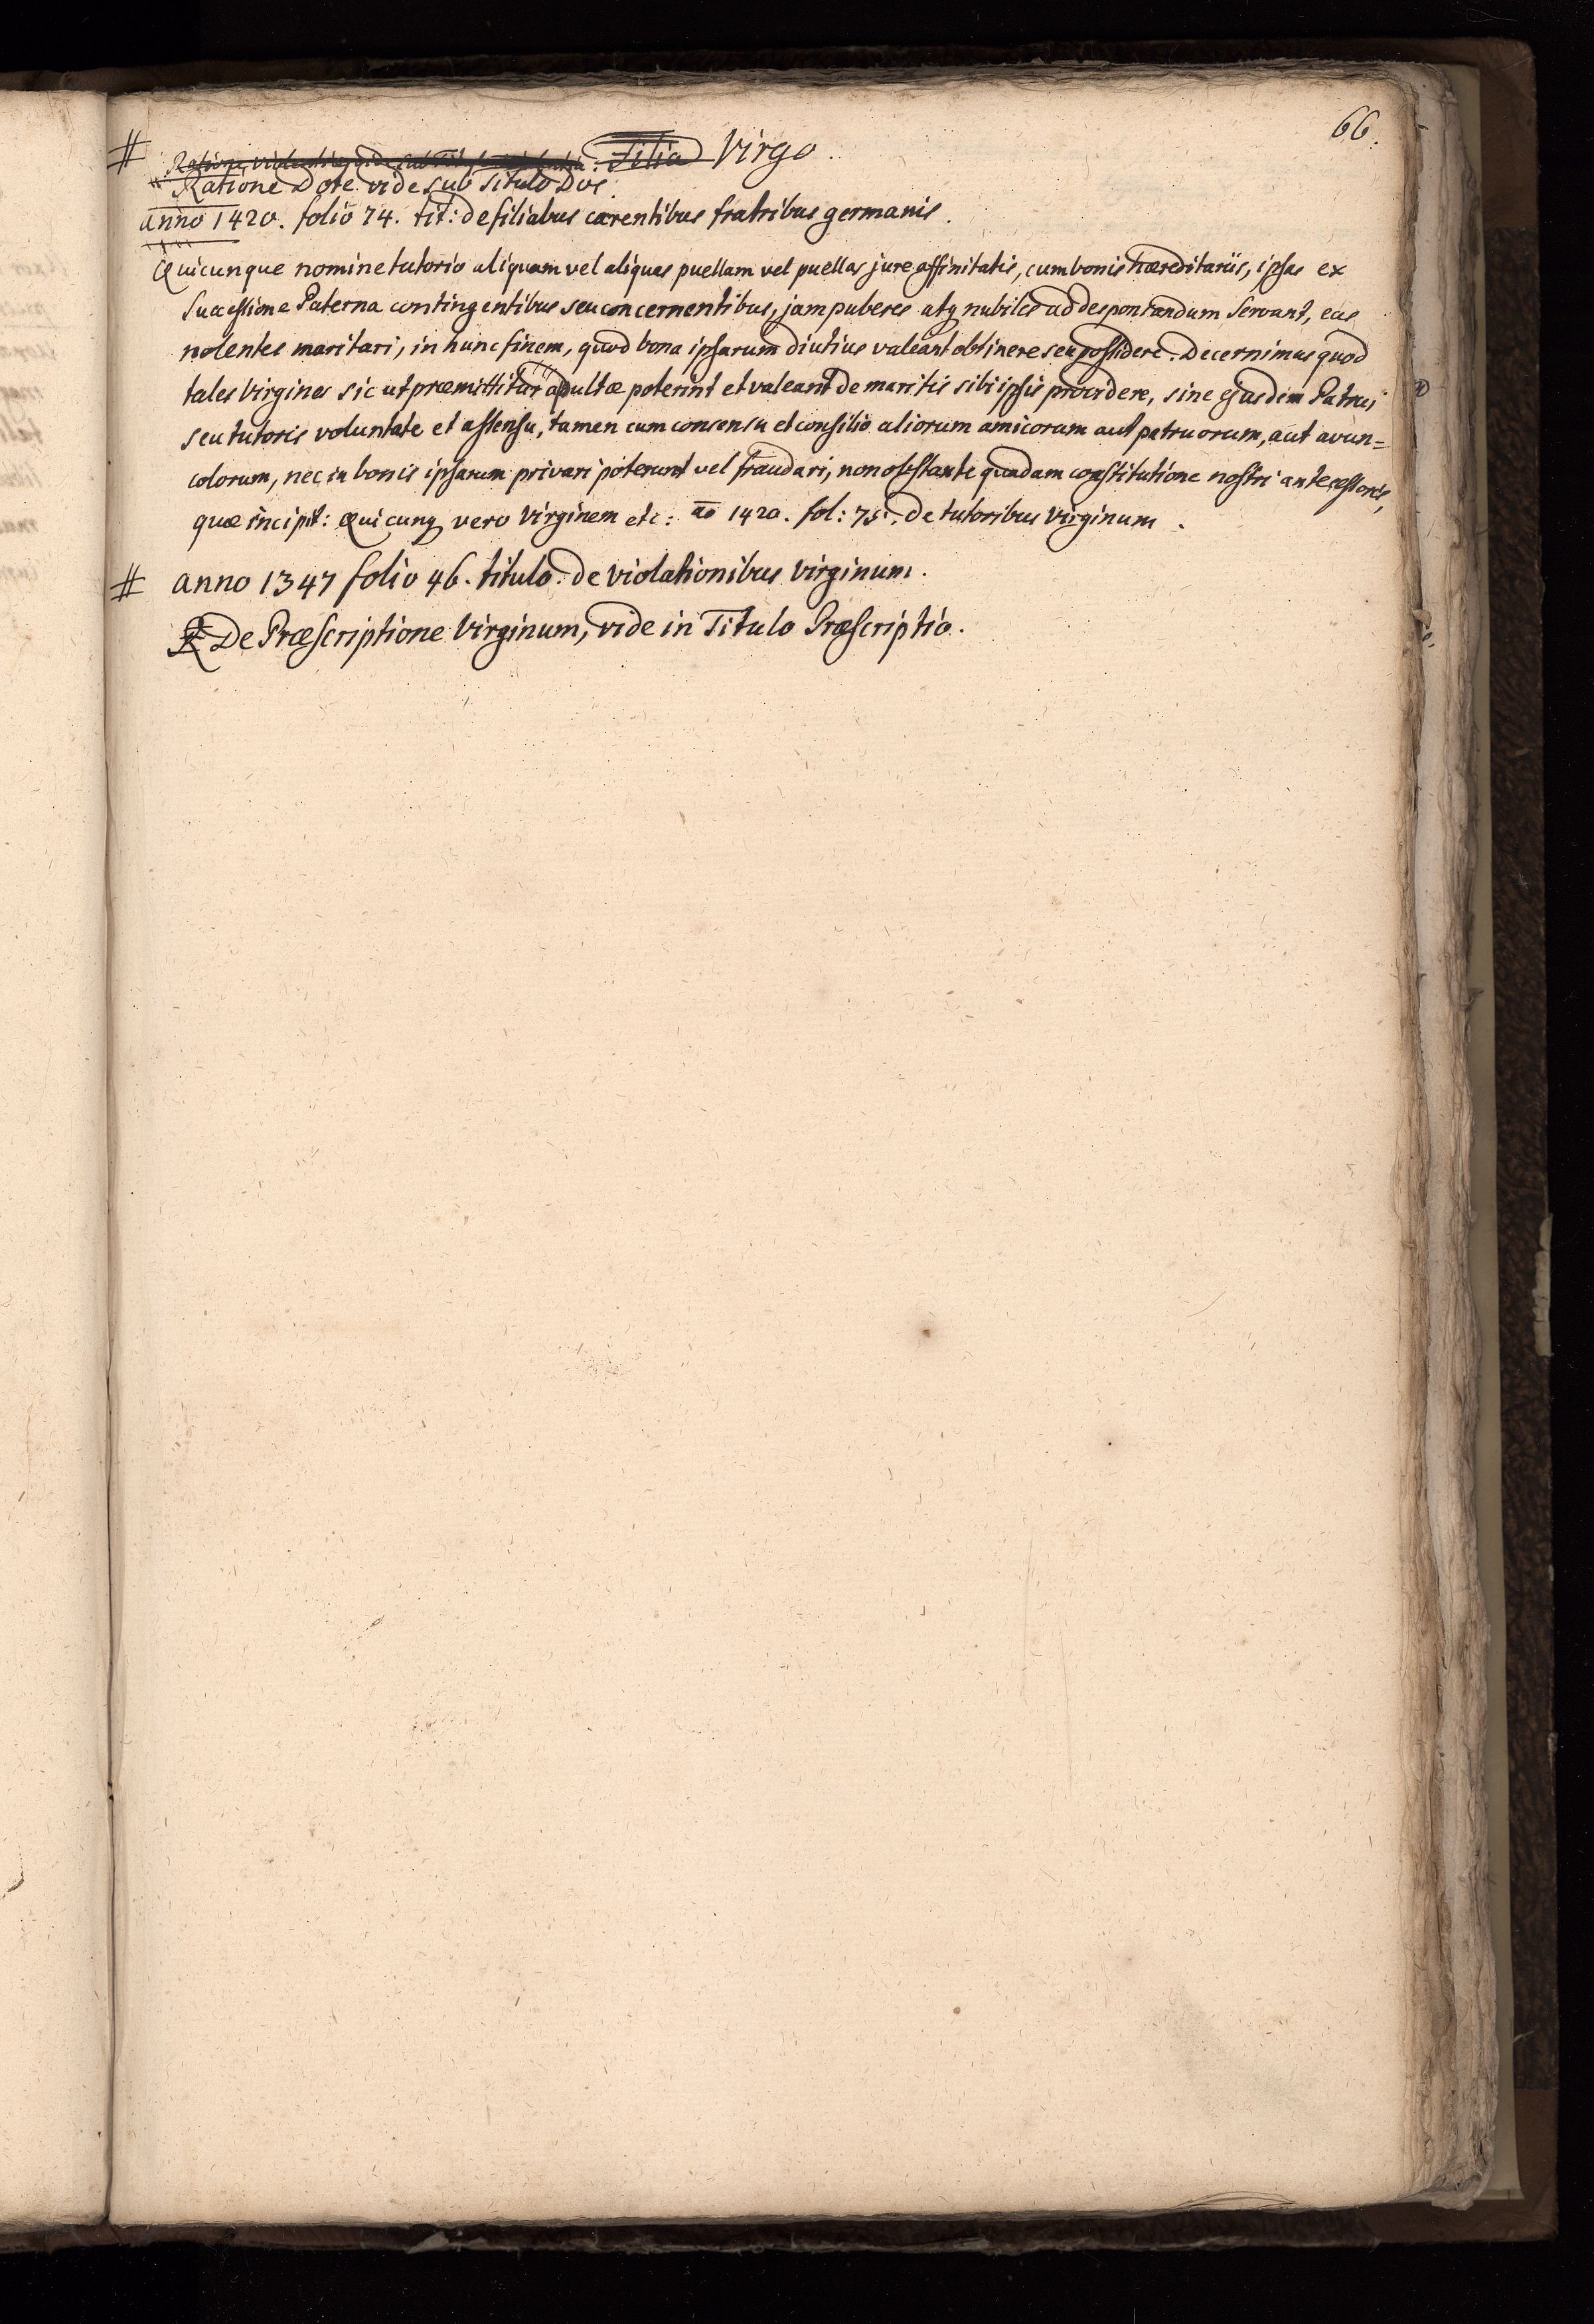 66.
# Ratione violentiæ vide sub Filia Virgo.
Ratione Dote vide sub Titulo Dos.
anno 1420. folio 74. tit: de filiabus carentibus fratribus germanis.
Quicunque nomine tutorio aliquam vel aliquas puellam vel puellas jure affinitatis, cum bonis hæreditariis, ipsas ex
Successione Paterna contingentibus seu concernentibus, jam puberes atq nubiles ad desponsandum servant, eas
nolentes maritari, in hunc finem, quod bona ipsarum diutius valeant obtinere seu possidere. Decernimus quod
tales Virgines sic ut præmittitur adultæ poterint et valeant de maritis sibi ipsis providere, sine ejusdem Patrui
seu tutoris voluntate et assensu, tamen cum consensu et consilio aliorum amicorum aut patruorum, aut avun=
colorum, nec in bonis ipsarum privari poterunt vel fraudari, non obstante quadam constitutione nostri antecessoris,
quæ incipit: Quicunq vero Virginem etc: ao 1420. fol: 75. De tutoribus Virginum.
# anno 1347 folio 46. titulo. de violationibus Virginum.
De Præscriptione Virginum, vide in Titulo Præscriptio.